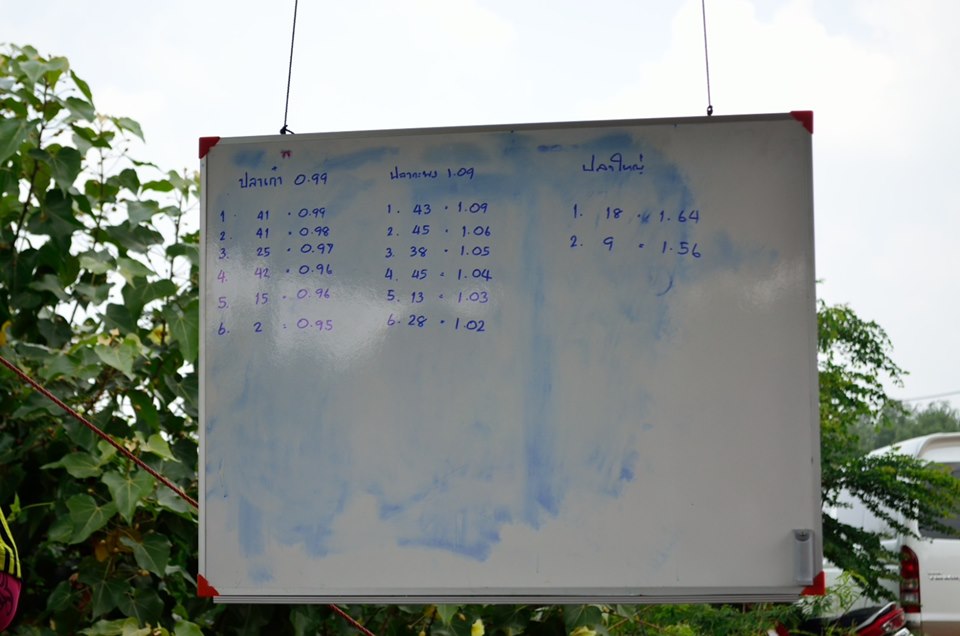 ปลาเก๋า 0.99
1. 41 = 0.99
2. 41 = 0.98
3. 25 = 0.97
4. 42 = 0.96
5. 15 = 0.96
6. 2 = 0.95
ปลากะพง 1.09
1. 43 = 1.09
2. 45 = 1.06
3. 38 = 1.05
4. 45 = 1.04
5. 13 = 1.03
6. 28 = 1.02
ปลาใหญ่
1. 18 = 1.64
2. 9 = 1.56